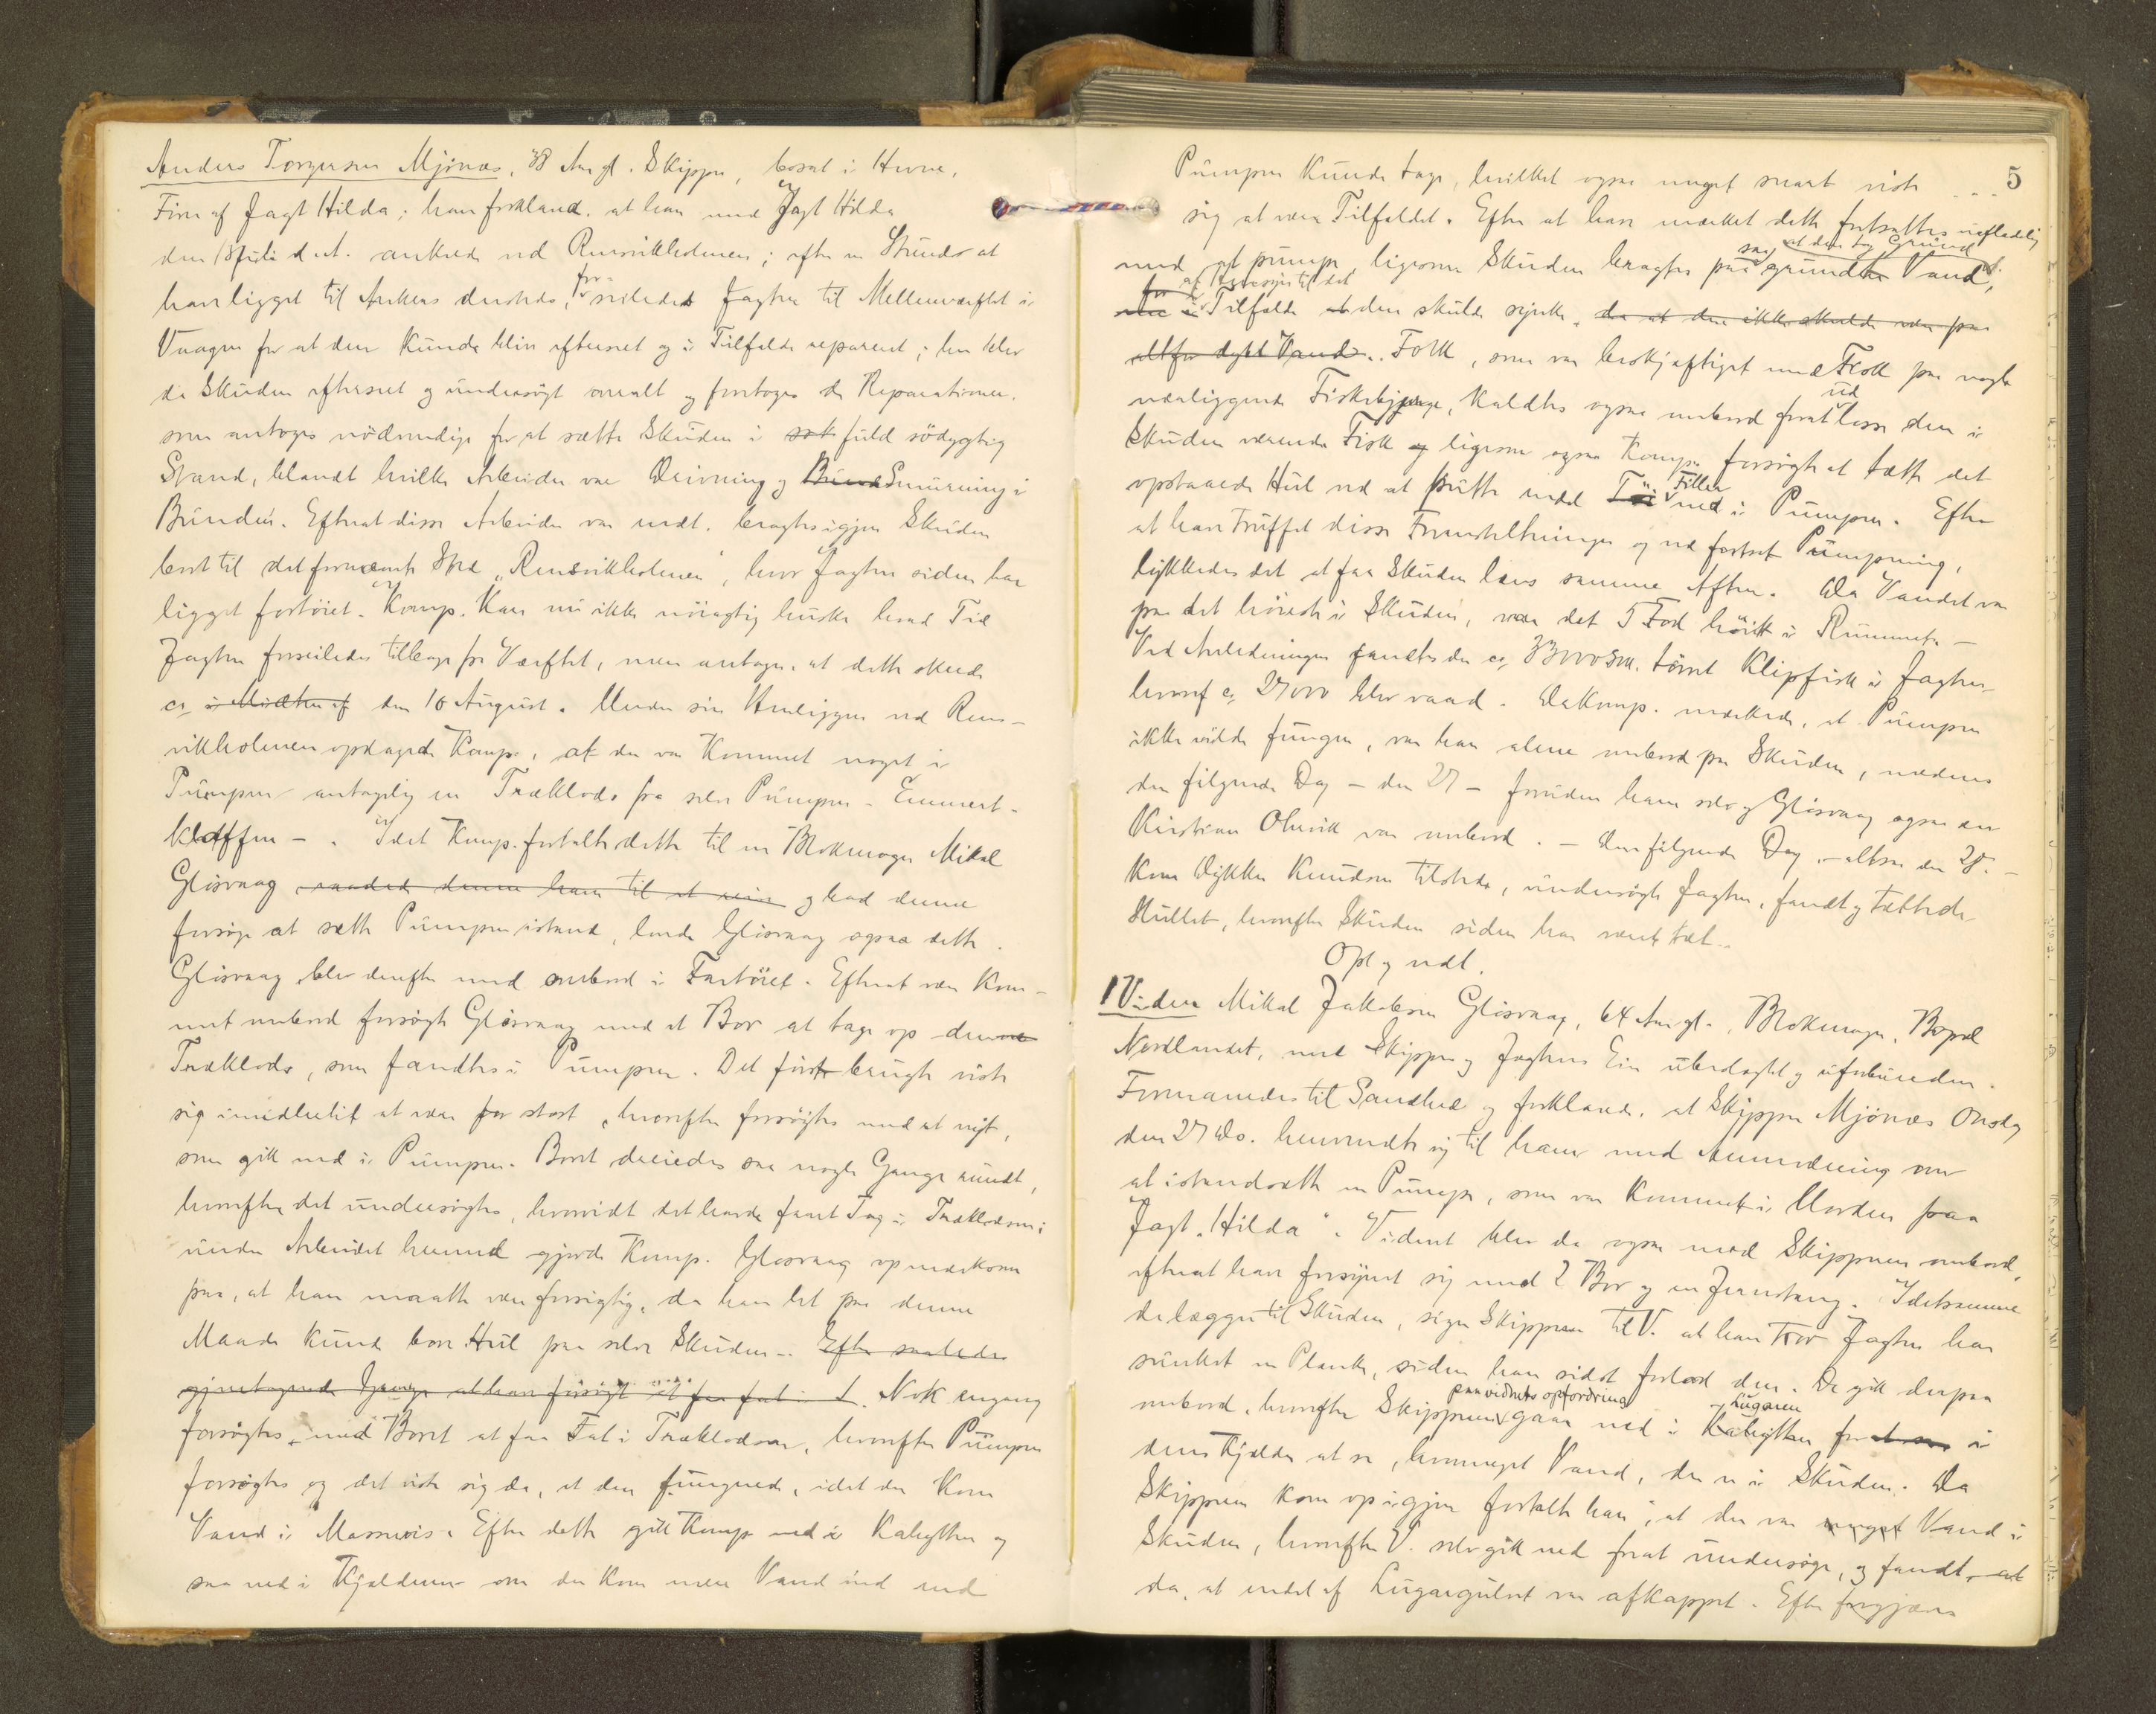 Anders Torgersen Mjönæs, 38 Aar gl. Skipper, bosat i Hevne,
Fører af Jagt Hilda; han forklared. at han med Jagt Hilda
den 18 Juli d. A. ankrede ved Rensvikholmen; efter en Stunds at
have ligget til Ankers dersteds, forseiledes Jagten til Mellemværftet i
Vaagen for at den kunde blive efterseet og i Tilfælde repareret; her blev
da Skuden efterseet og undersøgt overalt og foretoges de Reparationer,
som antoges nødvendige for at sætte Skuden i fuld södygtig
Stand, blandt hvilke Arbeider var Drivning og Smurning i
Bunden. Efterat disse Arbeider var endt, bragtes igjen Skuden
bort til det fornævnte Sted "Rensvikholmen", hvor Jagten siden har
ligget fortöiet. Komp. kan nu ikke nöiagtig huske hvad Tid
Jagten forseiledes tilbage fra Værftet, men antager, at dette skede
ca. i Midten af den 10 August. Under sin Henliggen ved Rens-
vikholmen opdagede Komp., at der var kommet noget i
Pumpen antagelig en Træklods fra selve Pumpen - Emmert-
kloffen - . Idet Komp. fortalte dette til en Blokmager Mikal
Glösvaag raadede denne ham til at og bad denne
forsøge at sætte Pumpen istand, lovde Glösvaag ogsaa dette.
Glösvaag blev derefter med ombord i Fartöiet. Efterat være kom-
met ombord forsögte Glösvaag med et Bor at tage op denne
Træklods, som fandtes i Pumpen. Det först brugte viste
sig imidlertid at være for stort, hvorefter forsögtes med et nyt,
som gik ned i Pumpen. Boret dreiedes saa nogle Gange rundt,
hvorefter det undersögtes, hvorvidt det havde faaet Tag i Træklodsen;
under Arbeidet hermed gjorde Komp. Glösvaag opmærksom
paa, at han maatte være forsigtig, da han let paa denne
Maade kunde bore Hul paa selve Skuden. Efter saaledes
gjentagende Gange at have forsögt at faa fat i Nok engang
forsögtes med Boret at faa Fat i Træklodsen, hvorefter Pumpen
forsögtes og det viste sig da, at den fungerede, idet der kom
Vand i Massevis. Efter dette gik Komp. ned i Kahytten og
saa ned i Kjælderen om der kom mere Vand ind end
5
Pumpen kunde tage, hvilket ogsaa meget snart viste
sig at være Tilfældet. Efter at have mærket dette fortsattes uafladelig
med at pumpe, ligesom Skuden bragtes paa saa grundt Vand, at den tog Grund
for af Hensyn til det Tilfælde at den skulde synke, da at den ikke skulde være paa
altfor dybt Vand. Folk, som var beskjæftiget med Fisk paa nogle
nærliggende Fiskebjerge, kaldtes ogsaa ombord forat losse ud den i
Skuden værende Fisk og ligesom ogsaa Komp. forsögte at tætte det
opstaaede Hul ved at putte endel Filler ned i Pumpen. Efter
at have truffet disse Foranstaltninger og ved fortsat Pumpning,
lykkedes det at faa Skuden læns samme Aften. Da Vandet var
paa det höieste i Skuden, var det 5 Fod höit i Rummet. -
Ved Anledningen fandtes der ca. törret Klipfisk i Jagten,
hvoraf ca. 27000 blev vaad. Da Komp. mærkede, at Pumpen
ikke vilde fungere, var han alene ombord paa Skuden, medens
den følgende Dag - den 27 - foruden ham selv og Glösvaag ogsaa en
Kristian Olsvik var ombord. - Den følgende Dag, - altsaa den 28. -
kom Dykker Knudsen tilstede, undersøgte Jagten, fandt og tættede
Hullet, hvorefter Skuden siden har været tæt. -
Opl. og vedt.
1 Vidne Mikal Jakobsen Glösvaag, 64 Aar gl., Blokmager, Bopæl
Nordlandet, med Skipper og Jagtens Eier ubeslægtet og ubesvogret.
Formanedes til Sandhed og forklarede, at Skipper Mjönæs Onsdag
den 27 ds. henvendte sig til ham med Anmodning om
at istandsætte en Pumpe, som var kommet i Uorden paa
Jagt "Hilda". Vidnet blev da ogsaa med Skipperen ombord,
efterat have forsynet sig med 2 Bor og en Jernstang. Idetsamme
de lægger til Skuden, siger Skipperen til V. at han tror Jagten har
sunket en Planke, siden han sidst forlod den. De gik derpaa
ombord, hvorefter Skipperen paa vidnets opfordring gaar ned i Kahytten Lugaren for at se i
dens Kjælder at se, hvormeget Vand, der er i Skuden. Da
Skipperen kom op igjen fortalte han, at der var meget Vand i
Skuden, hvorefter V. selv gik ned forat undersøge, og fandt at
da, at endel af Lugargulvet var afkappet. Efter forgjæves